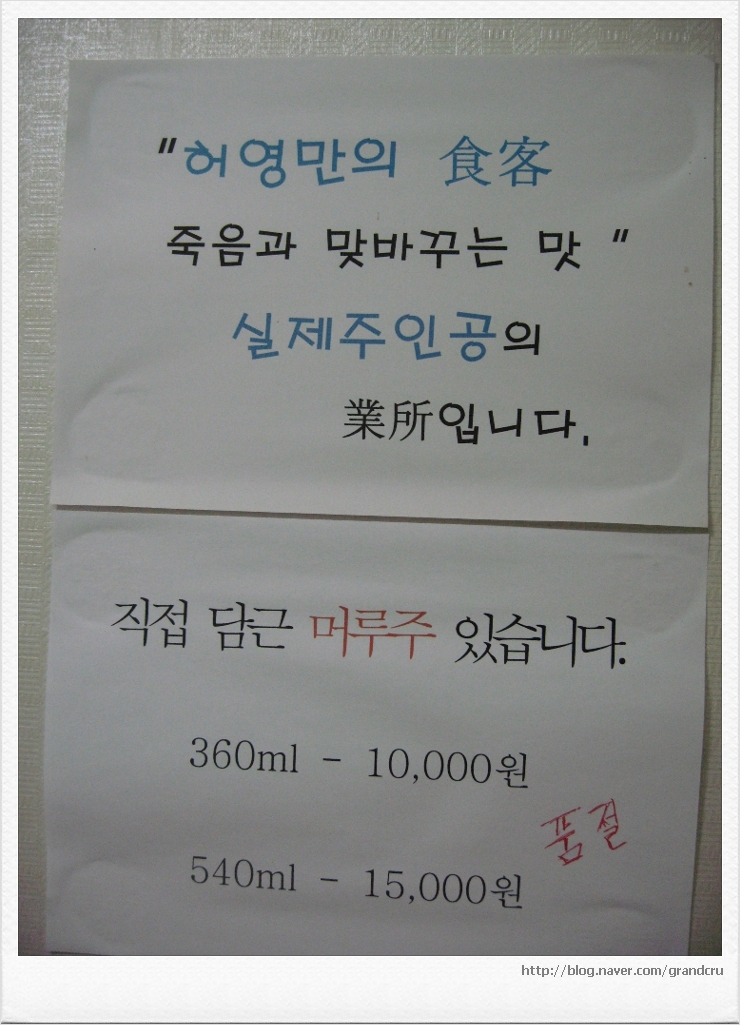 "허영만의 食客
죽음과 맞바꾸는 맛 "
실제주인공의
業所입니다.
직접 담근 머루주 있습니다.
360ml - 10,000원
품절
540ml - 15,000원
http://blog.naver.com/grandcru